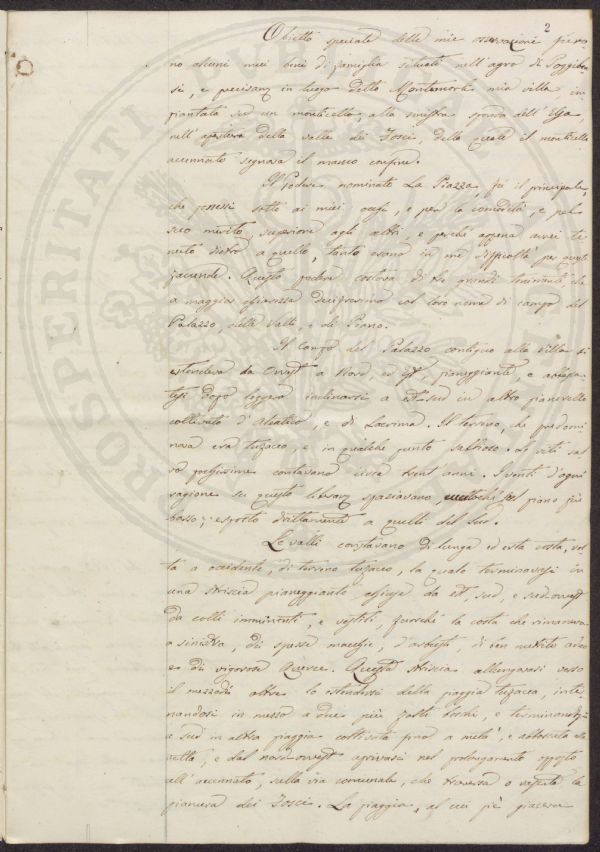 2
Obietto speciale delle mie osservazioni furo-
no alcuni miei beni di famiglia situati nell'agro di Poggibon-
si, e precisam in luogo detto Montemorli mia villa im-
piantata su d'un monticello, alla sinistra sponda dell'Elsa,
nell'apertura della valle dei Fosci, della quale il monticello
accennato segnava il manco confine.
Il Podere nominato La Piazza, fu il principale,
che possessi sotto ai miei occhi, e per la comodità, e pel
suo merito, superiore agli altri, e perchè appena avrei te-
nuto dietro a quello, tanto erano in me difficoltà per queste
faccende. Questo podere costava di tre grandi tenimenti, che
a maggior chiarezza decifrarono col loro nome di campo del
Palazzo, delle Valli, e di Piano.
Il Campo del Palazzo contiguo alla villa si
estendeva da Ovest a Nord, ed Est, pianeggiante, e
dopo leggera inclinarsi a est-sud in altro piancello
coltivato d'Aleatico, e di Lacrima. Il terreno, che predomi-
nava era tufaceo, e in qualche punto sabbioso. Le viti sal-
vo pochissime contavano circa trent'anni. I venti d'ogni
ragione su questo spaziavano, sul piano più
basso; esposto direttamente a quelli del Sud.
Le valli constavano di lunga ed erta costa, vol-
ta a occidente, di terreno tufaceo, la quale terminavasi in
una striscia pianeggiante da est sud, e sud-ovest
da colli imminenti, e vestiti, fuorchè la costa che rimaneva
a sinistra, di spesse macchie, d'arbusti, di ben nutrite
e di vigorose Querce. Questa striscia allungavasi verso
il mezzodì oltre lo estendersi della piaggia tufacea, inter-
nandosi in mezzo a due più folti boschi, e terminando
a sud in altra piaggia coltivata fino a metà, e
vetta, e dal nord-ovest aprivasi nel prolungamento opposto
all'accennato, sulla via comunale, che traversa la
pianura dei Fosci. La piaggia, al cui piè giaceva